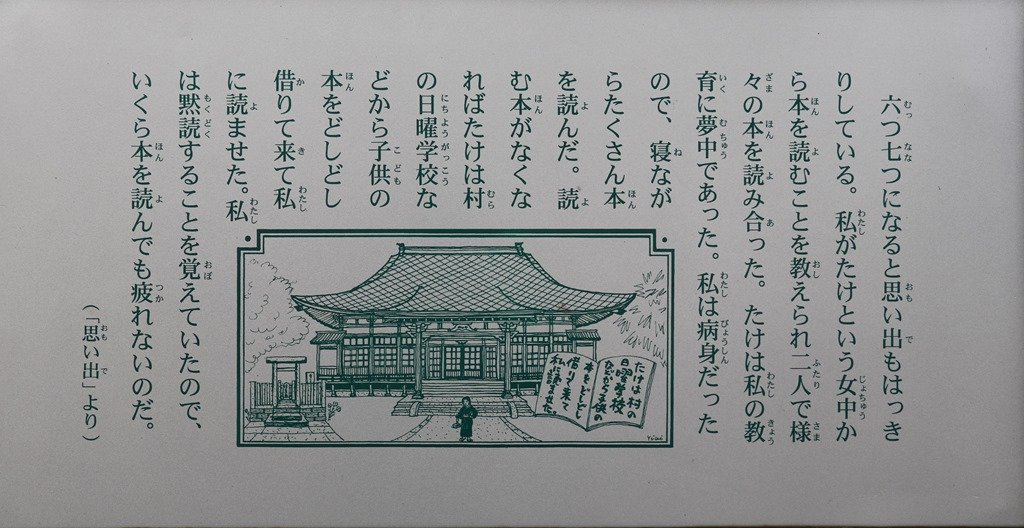 六つ七つになると思い出もはっき
りしている。私がたけという女中か
ら本を読むことを教えられ二人で様
々の本を読み合った。たけは私の教
育に夢中であった。私は病身だった
ので、寝なが
らたくさん本
を読んだ。読
む本がなくな
ればたけは村
の日曜学校な
どから子供の
本をどしどし
借りて来て私
に読ませた。私
は黙読することを覚えていたので、
いくら本を読んでも疲れないのだ。
（「思い出」より）
たけは村の
日曜学校
などから子供の
本をどしどし
借りて来て
私に読ませた。